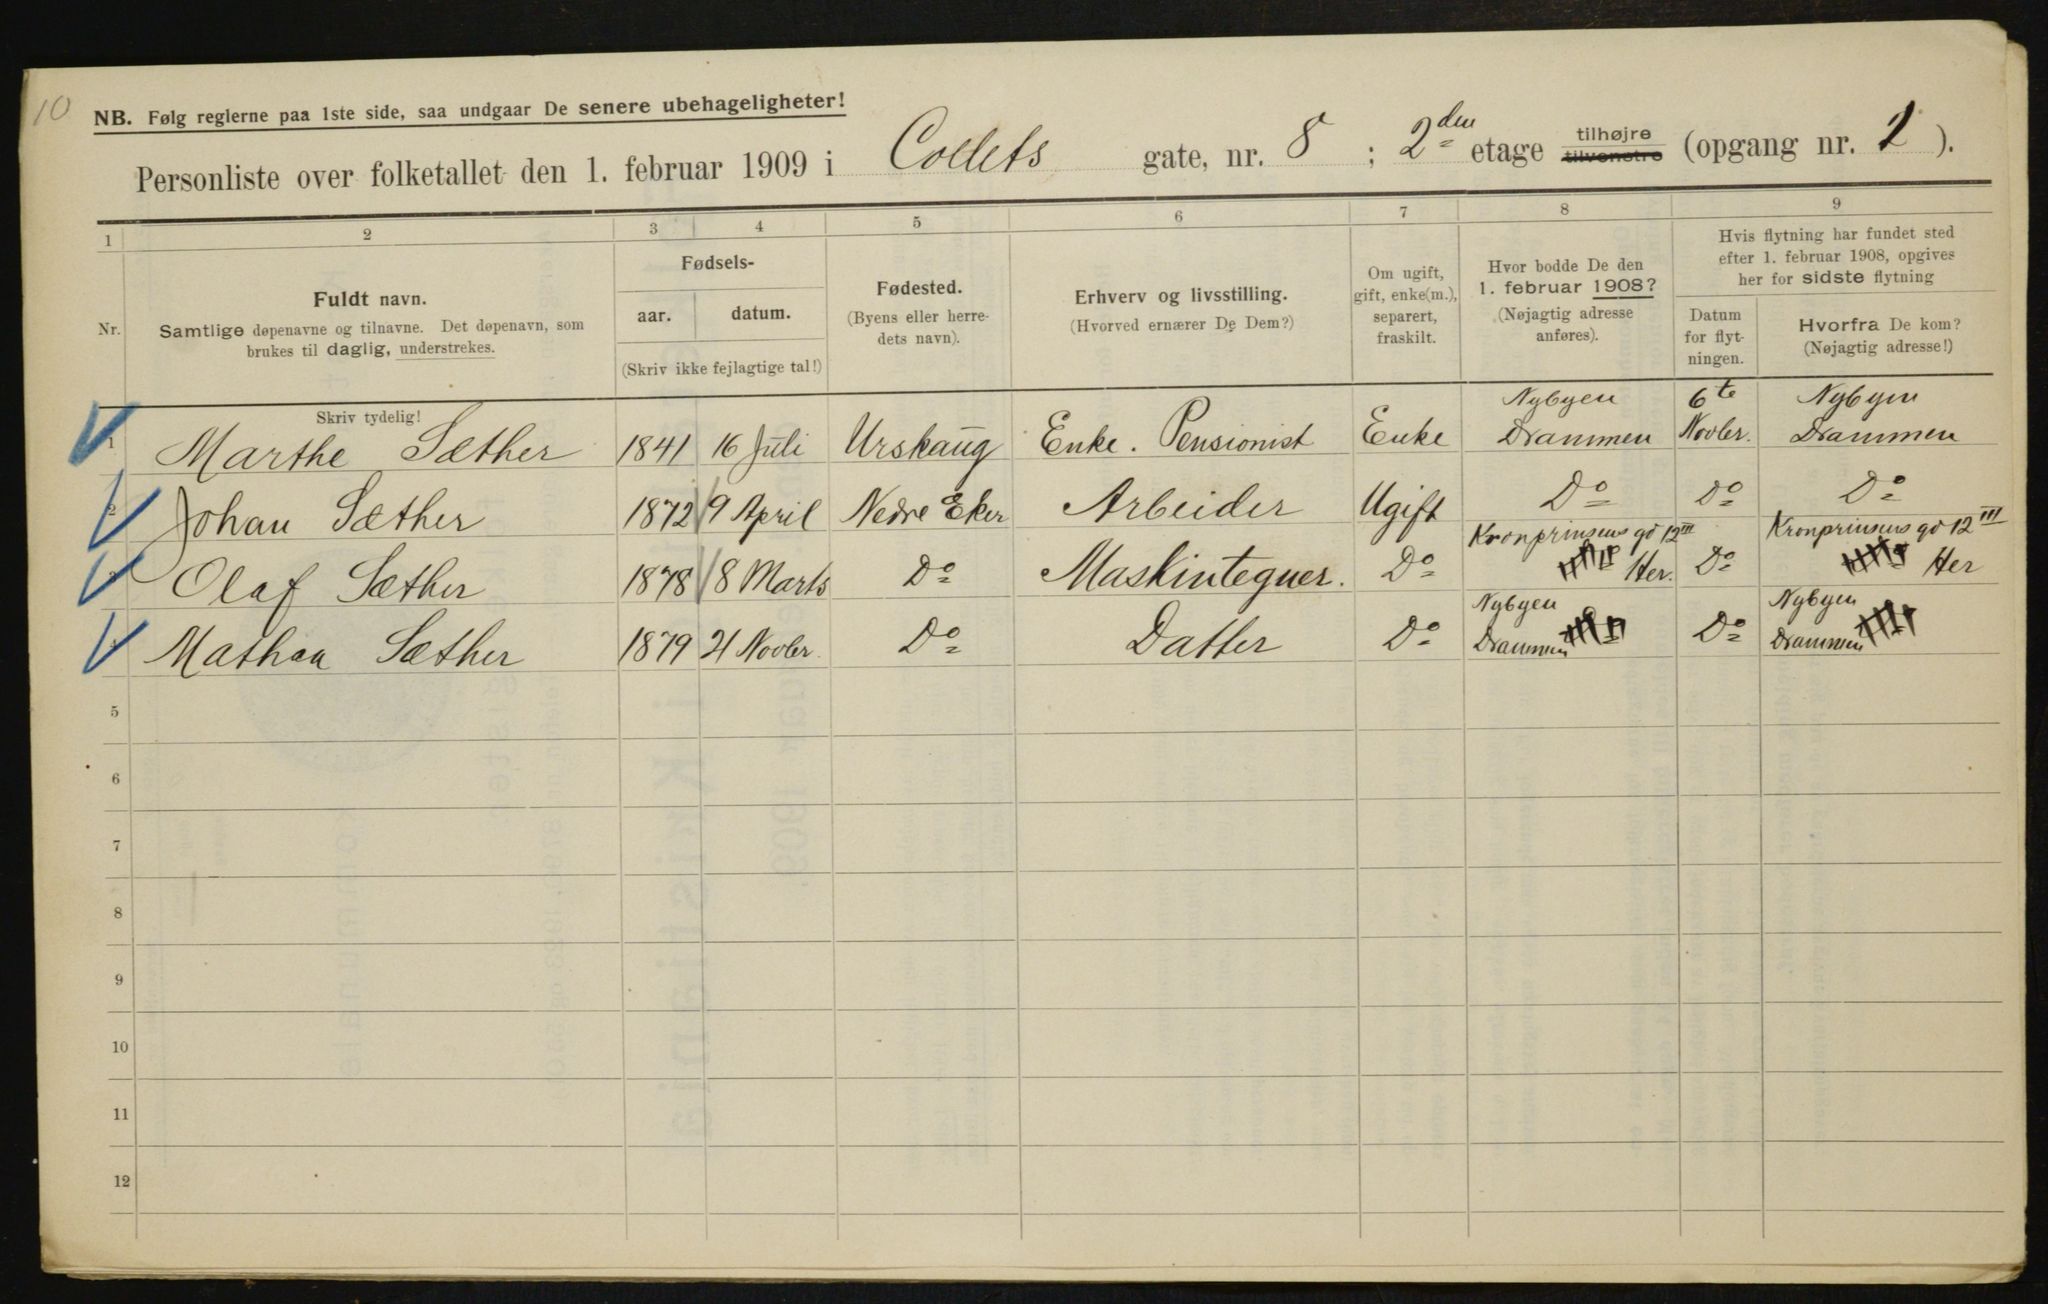 10
NB. Følg reglerne paa 1ste side, saa undgaar De senere ubehageligheter!
Personliste over folketallet den 1. februar 1909 i Collets gate, nr. 8 ; 2den etage tilhøjre tilvenstre (opgang nr. 1 ).
1 2 3 4 5 6 7 8 9
Nr.
Fuldt navn.
Samtlige døpenavne og tilnavne. Det døpenavn, som
brukes til daglig, understrekes.
Fødsels-
aar. datum.
(Skriv ikke fejlagtige tal!)
Fødested.
(Byens eller herre-
dets navn).
Erhverv og livsstilling.
(Hvorved ernærer De Dem?)
Om ugift,
gift, enke(m.),
separert,
fraskilt.
Hvor bodde De den
1. februar 1908?
(Nøjagtig adresse
anføres).
Hvis flytning har fundet sted
efter 1. februar 1908, opgives
her for sidste flytning
Datum
for flyt-
ningen.
Hvorfra De kom?
(Nøjagtig adresse!)
Skriv tydelig!
1 Marthe Sæther 1841 16 Juli Urskaug Enke. Pensionist Enke Nybyen Drammen 6te Novbr. Nybyen Drammen
2 Johan Sæther 1872 9 April Nedre Eker Arbeider Ugift Do Do Do
3 Olaf Sæther 1878 8 Marts Do Maskintegner. Do Kronprinsens gd 12 III Her. Do Kronprinsens gd 12 III Her
4 Mathea Sæther 1879 21 Novbr. Do Datter Do Nybyen Drammen Do Nybyen Drammen
5
6
7
8
9
10
11
12